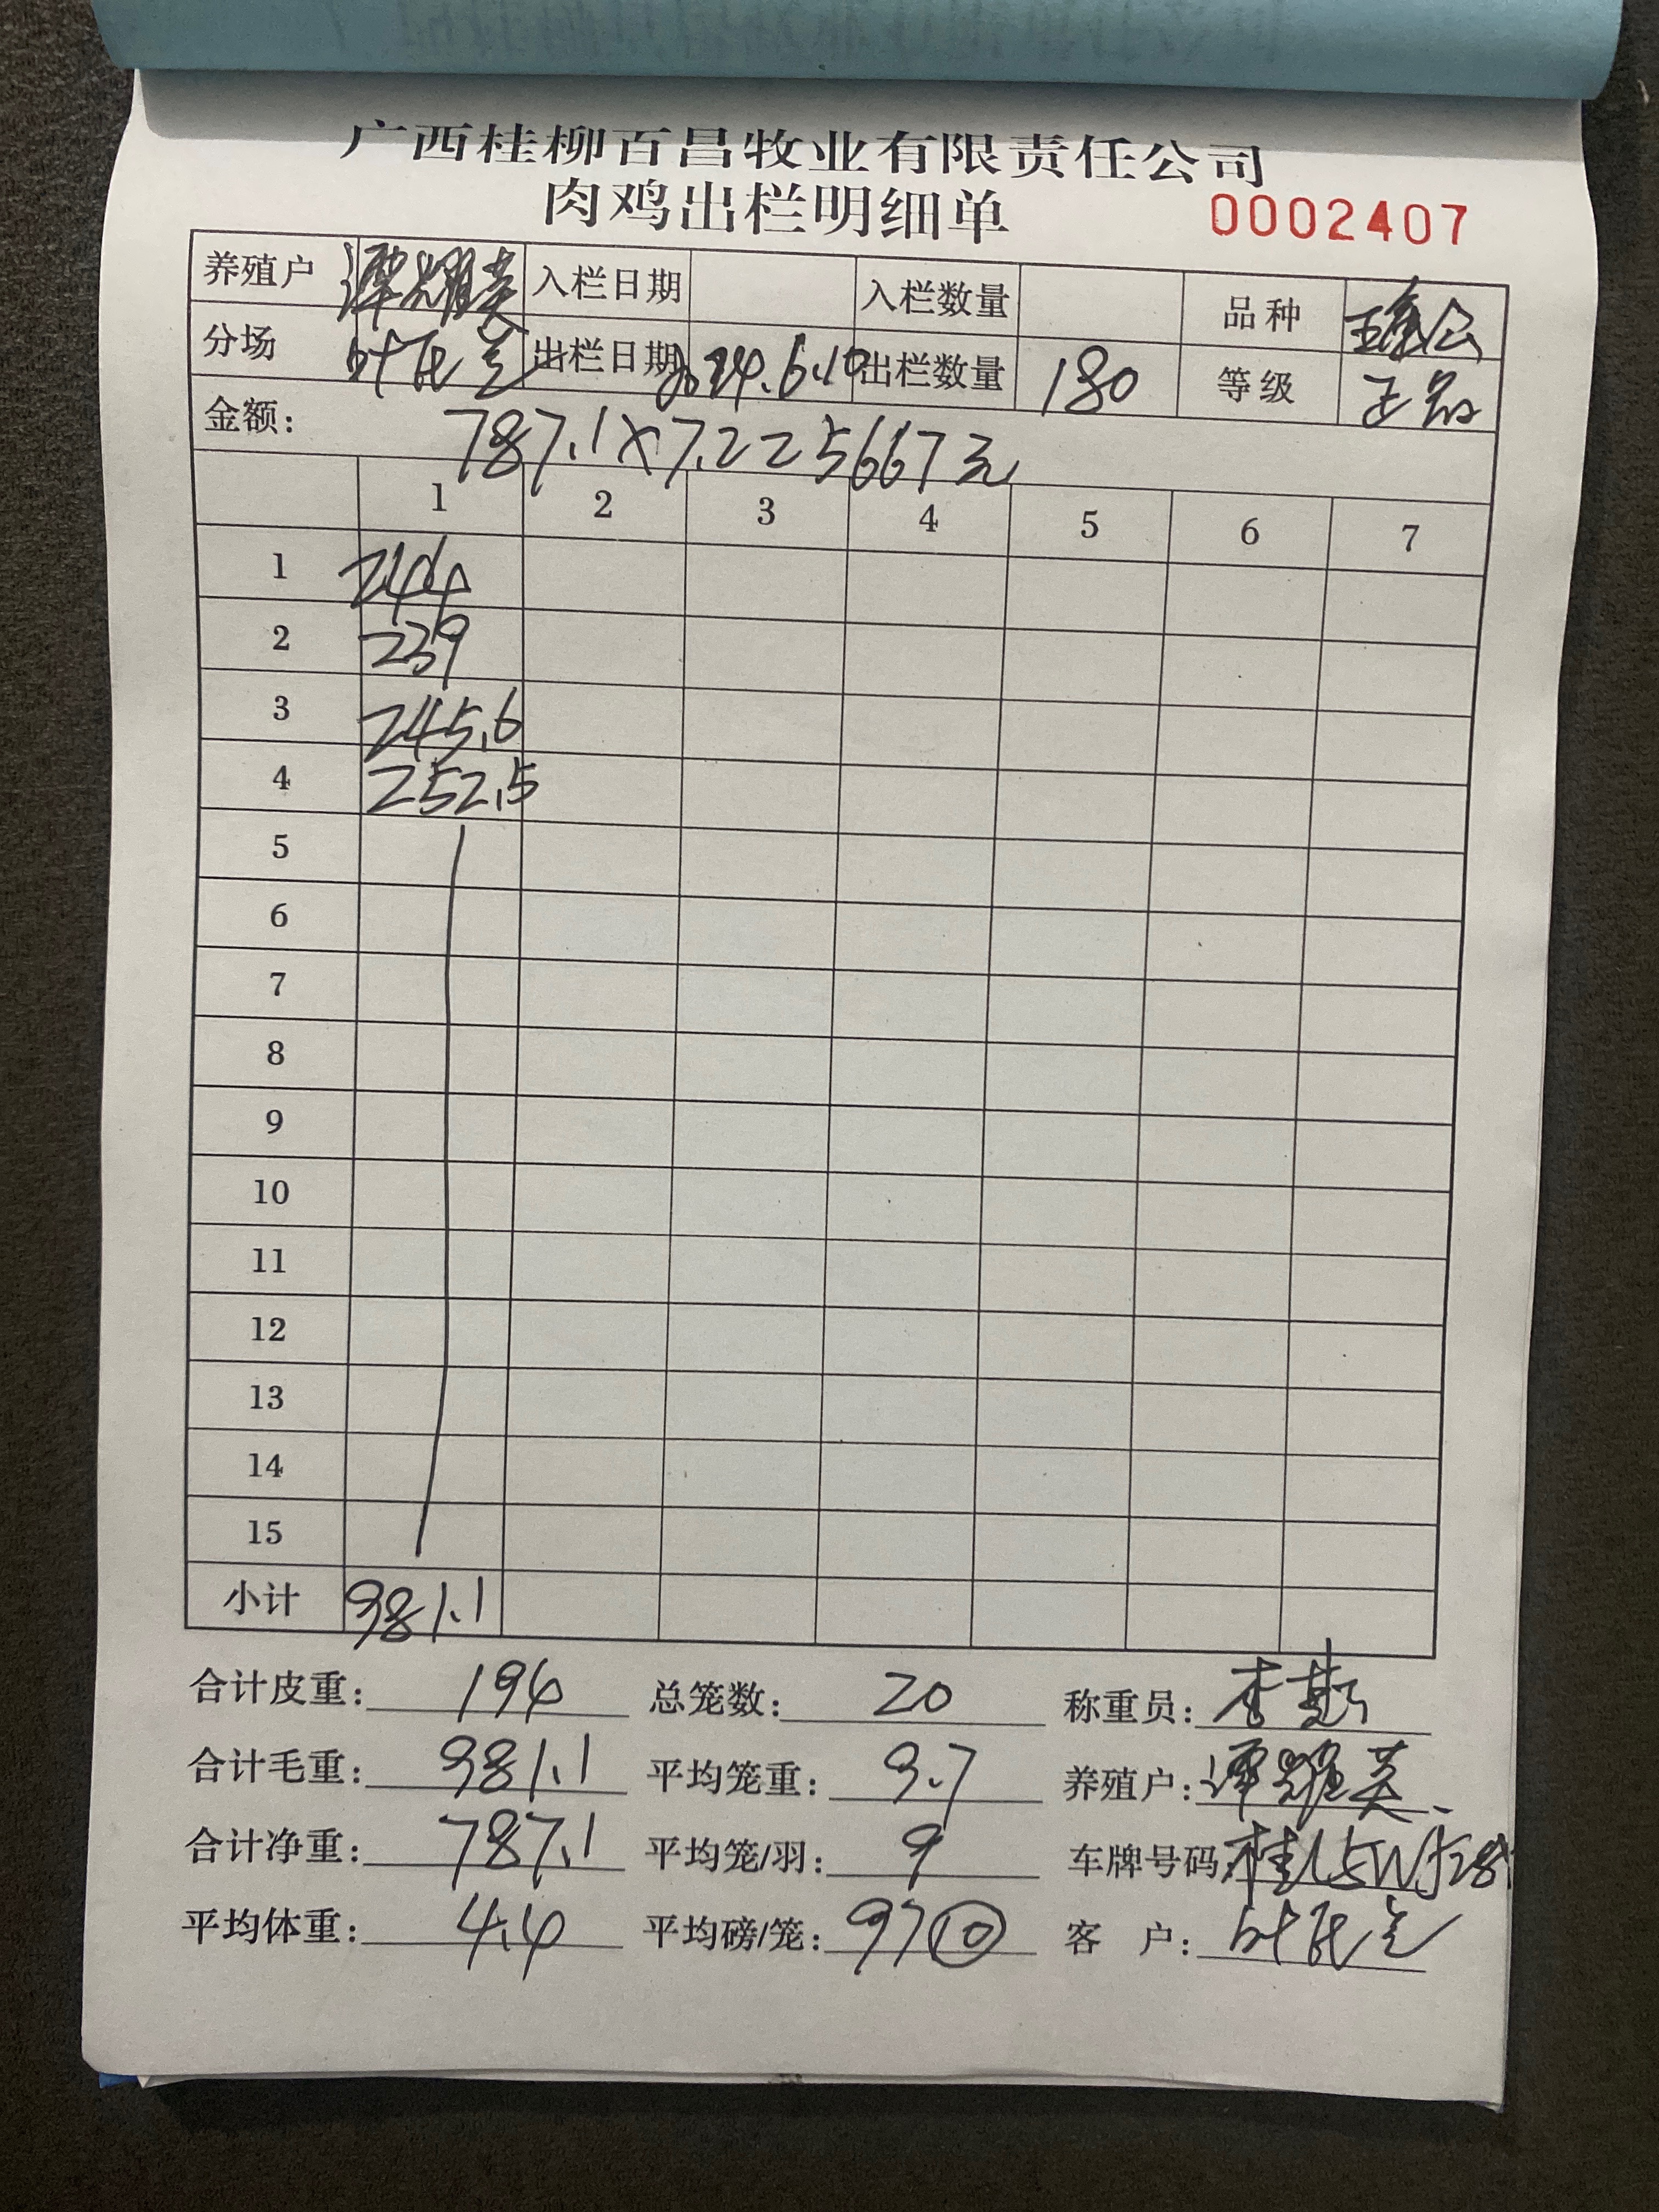 广西桂柳百昌牧业有限责任公司
肉鸡出栏明细单 0002407
养殖户 谭耀英 入栏日期 入栏数量 品种
分场 出栏日期 2024.6.10 出栏数量 180 等级 正品
金额: 787.1×7.2=5667元
1 2 3 4 5 6 7
1 244
2 239
3 245.6
4 252.5
5
6
7
8
9
10
11
12
13
14
15
小计 981.1
合计皮重: 194 总笼数: 20 称重员: 李
合计毛重: 981.1 平均笼重: 9.7 养殖户: 谭耀英
合计净重: 787.1 平均笼/羽: 9 车牌号码:
平均体重: 4.4 平均磅/笼: 97 10 客户: